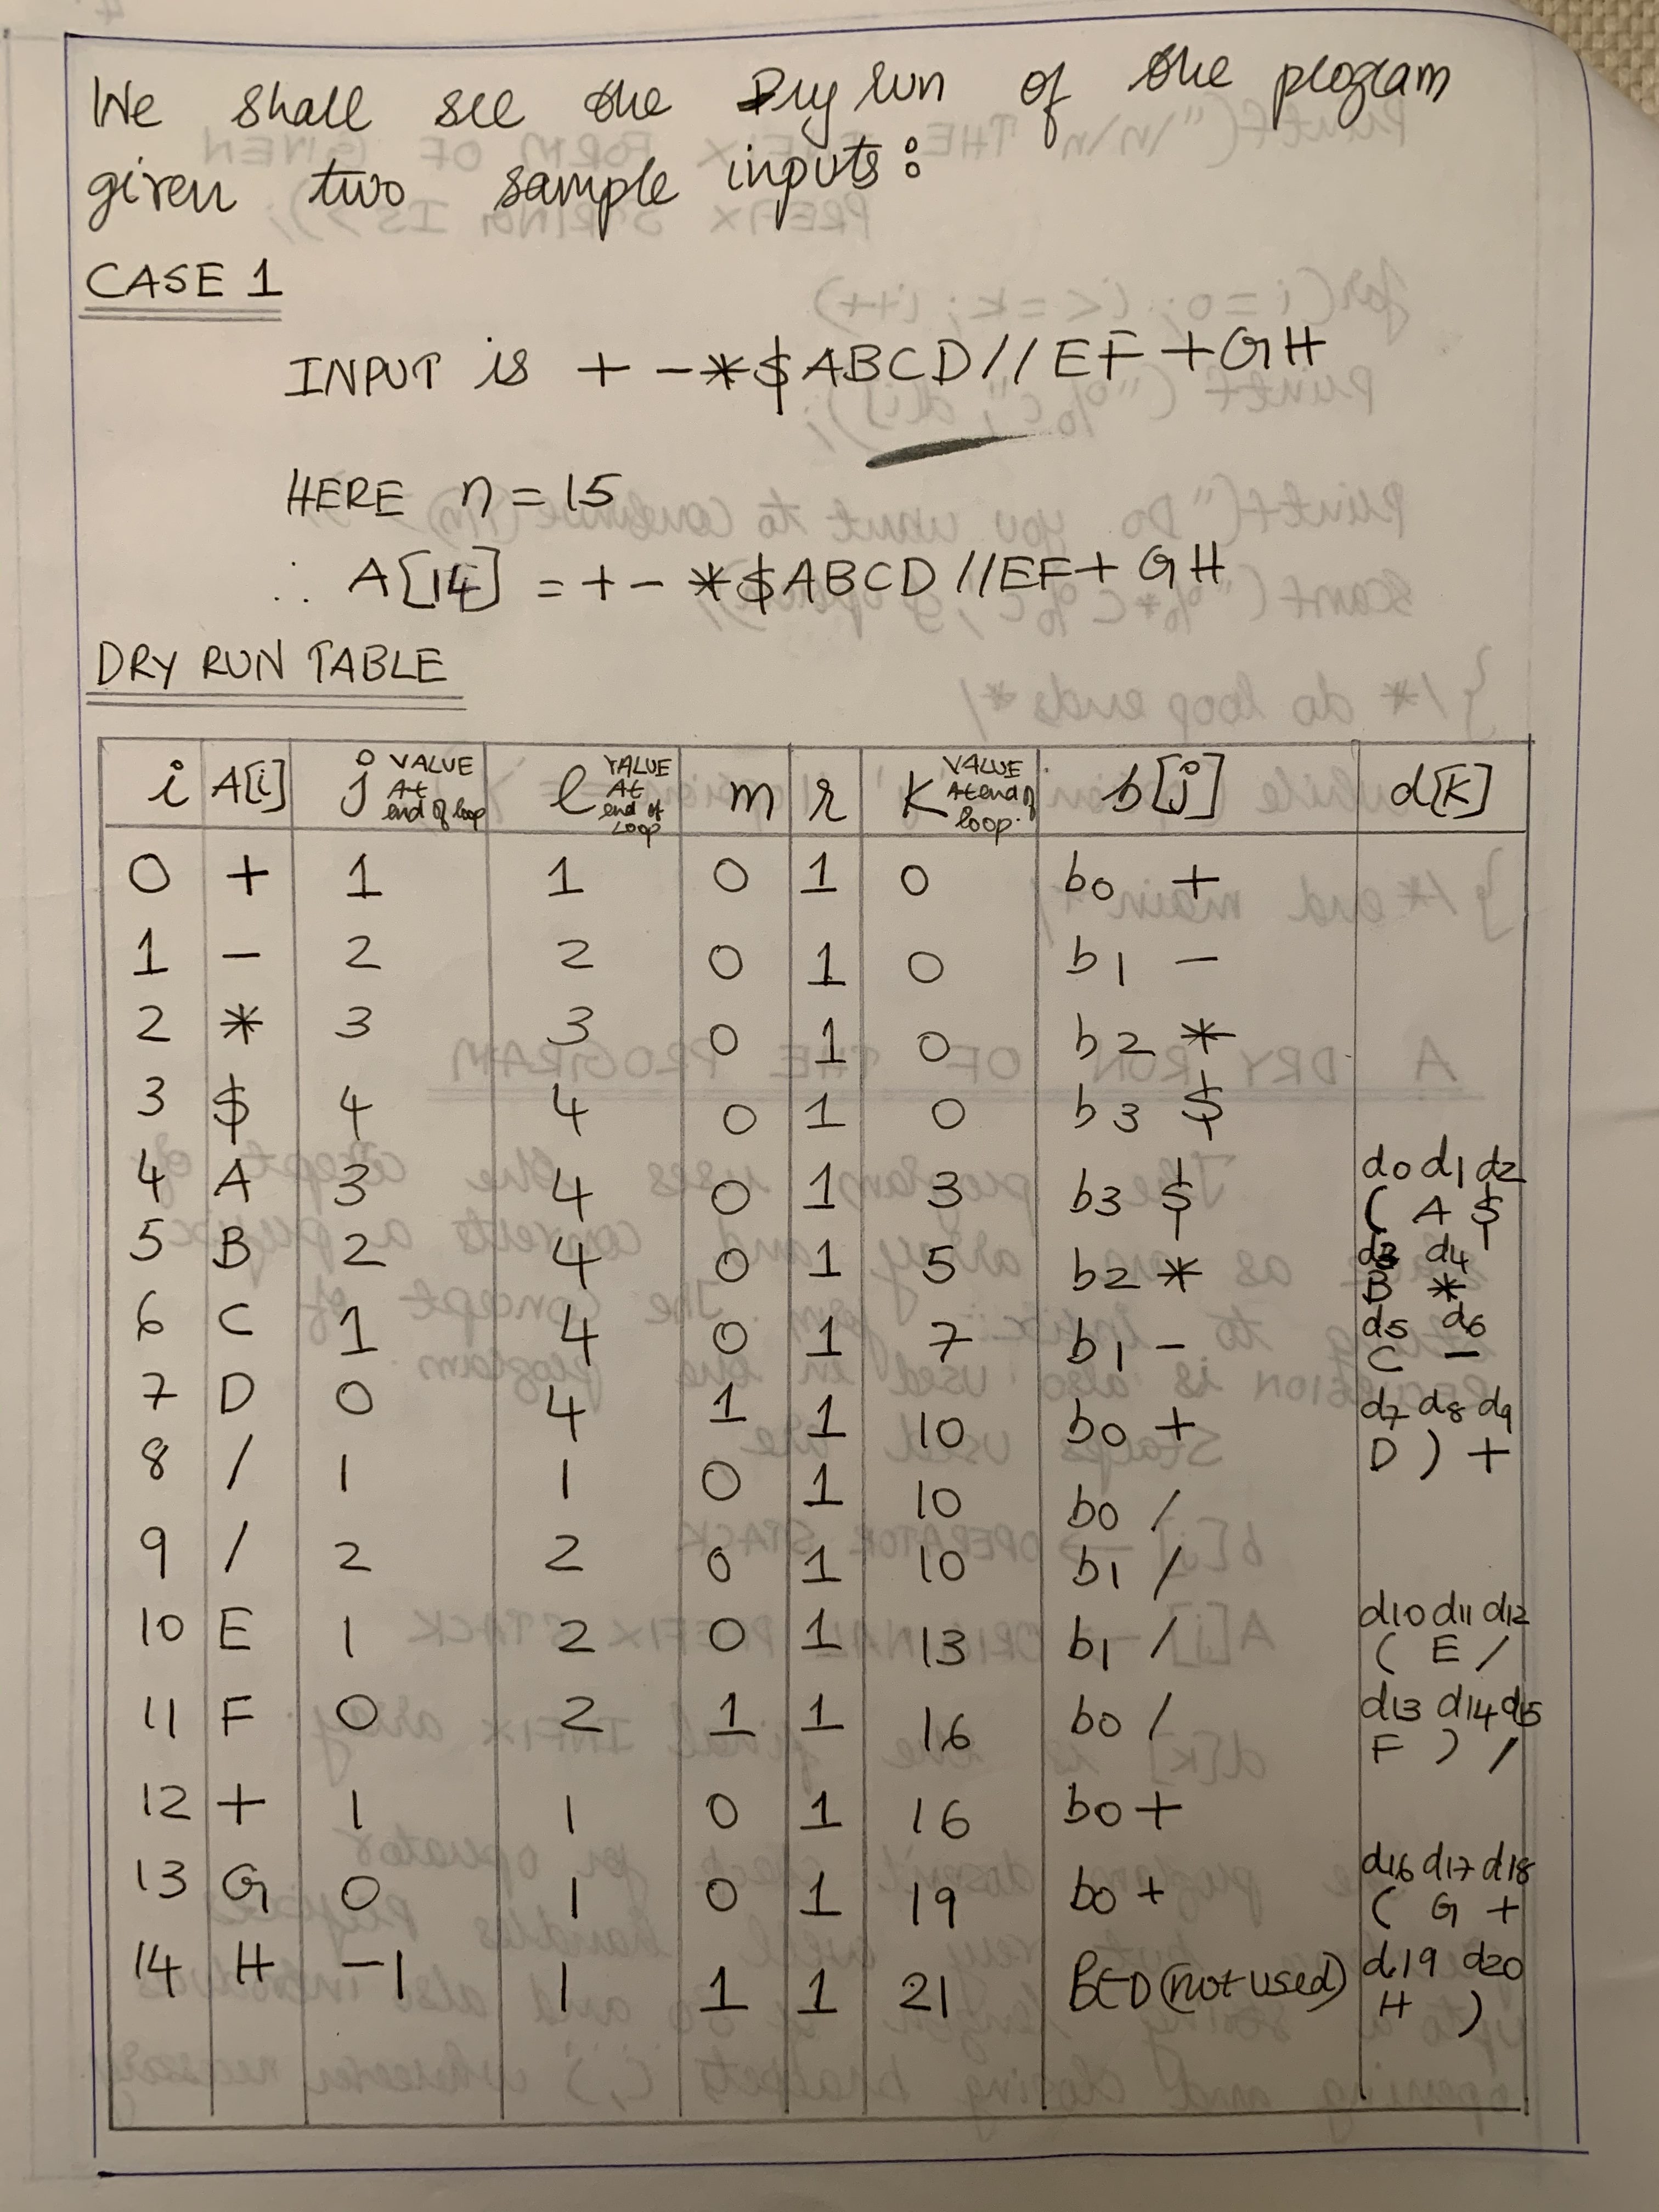 We shall see the Dry run of the program
given two sample inputs:
CASE 1
INPUT is + - *$ABCD//EF+GH
HERE n = 15
∴ A[14] = + - *$ABCD//EF+GH
DRY RUN TABLE
i A[i] j VALUE At end of loop l VALUE At end of LOOP m r K VALUE At end of loop. b[j] d[K]
0 + 1 1 0 1 0 b0 +
1 - 2 2 0 1 0 b1 -
2 * 3 3 0 1 0 b2 *
3 $ 4 4 0 1 0 b3 $
4 A 3 4 0 1 3 b3 $ d0 d1 d2 ( A $
5 B 2 4 0 1 5 b2 * d3 d4 B *
6 C 1 4 0 1 7 b1 - d5 d6 C -
7 D 0 4 1 1 10 b0 + d7 d8 d9 D ) +
8 / 1 1 0 1 10 b0 /
9 / 2 2 0 1 10 b1 /
10 E 1 2 0 1 13 b1 / d10 d11 d12 ( E /
11 F 0 2 1 1 16 b0 / d13 d14 d15 F ) /
12 + 1 1 0 1 16 b0 +
13 G 0 1 0 1 19 b0 + d16 d17 d18 ( G +
14 H -1 1 1 1 21 (not used) d19 d20 H )